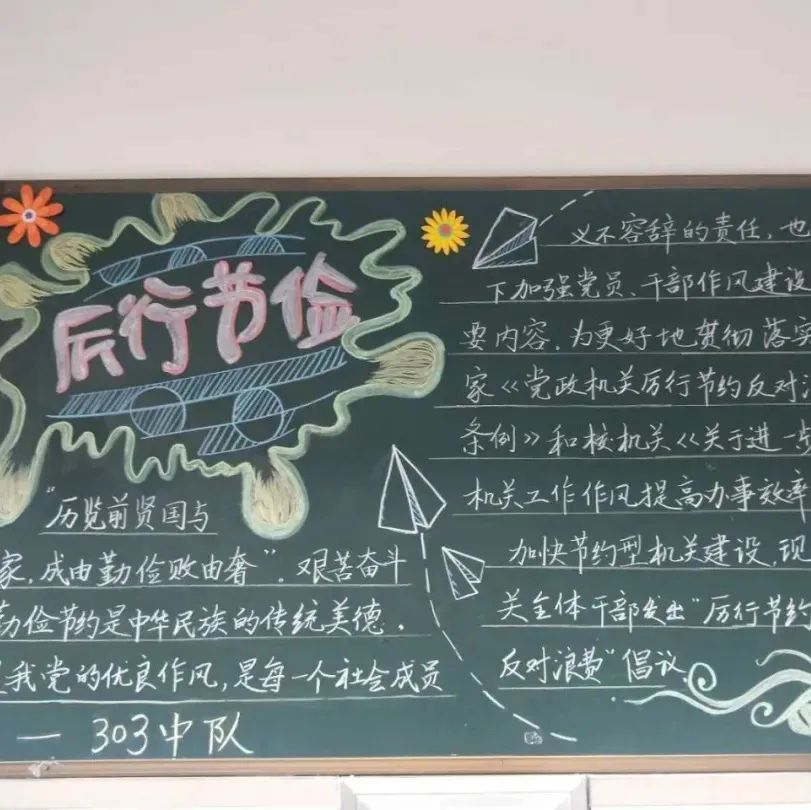 厉行节俭
"历览前贤国与
家,成由勤俭败由奢"。艰苦奋斗
勤俭节约是中华民族的传统美德.
是我党的优良作风,是每一个社会成员
— 303中队
义不容辞的责任,也
下加强党员、干部作风建设
要内容.为更好地贯彻落实
家《党政机关厉行节约反对
条例》和核机关《关于进一步
机关工作作风提高办事效率
加快节约型机关建设,现
关全体干部发出"厉行节约
反对浪费"倡议.